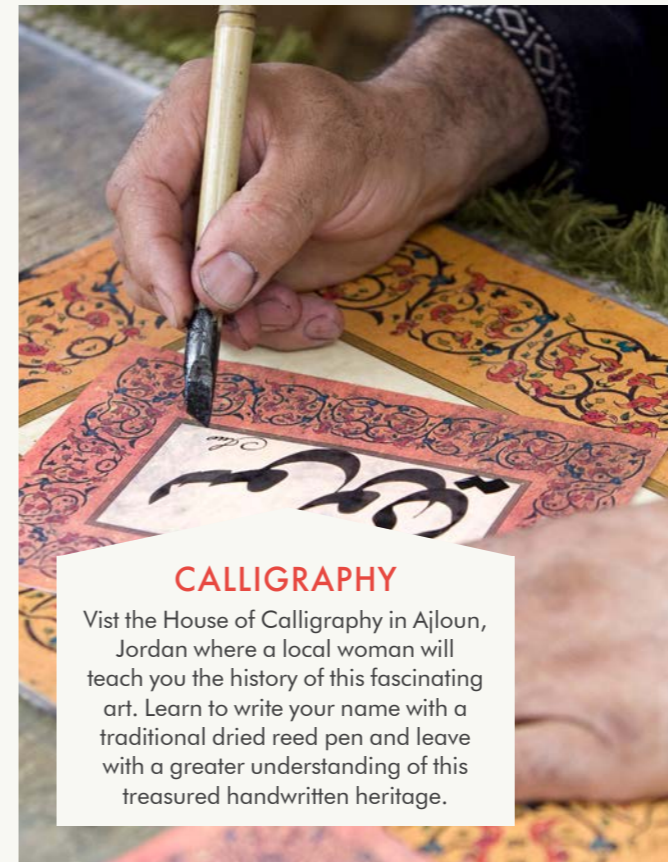 CALLIGRAPHY
Vist the House of Calligraphy in Ajloun,
Jordan where a local woman will
teach you the history of this fascinating
art. Learn to write your name with a
traditional dried reed pen and leave
with a greater understanding of this
treasured handwritten heritage.